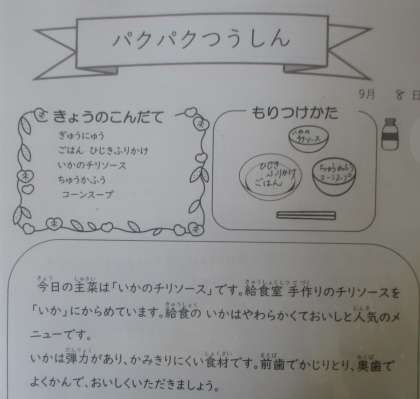 パクパクつうしん
9月 8日
きょうのこんだて
ぎゅうにゅう
ごはん ひじきふりかけ
いかのチリソース
ちゅうかふう
コーンスープ
もりつけかた
いかの
チリソース
ひじき
ふりかけ
ごはん
ちゅうかふう
コーンスープ
今日の主菜は「いかのチリソース」です。給食室 手作りのチリソースを
「いか」にからめています。給食の いかはやわらかくておいしと人気のメ
ニューです。
いかは弾力があり、かみきりにくい食材です。前歯でかじりとり、奥歯で
よくかんで、おいしくいただきましょう。